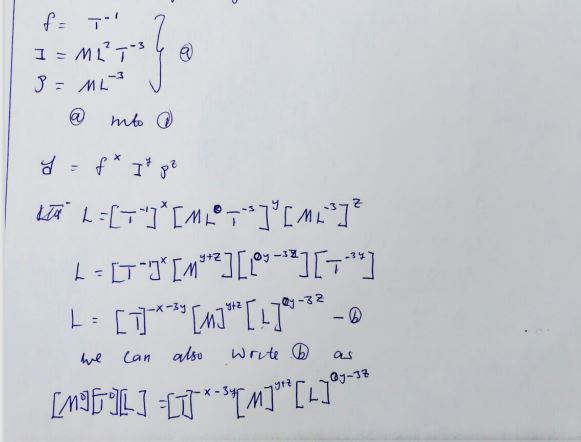 f = T⁻¹
I = ML² T⁻³ } ⓐ
ρ = ML⁻³
ⓐ into ①
d = fˣ Iʸ ρᶻ
L = [T⁻¹]ˣ [ML⁰ T⁻³]ʸ [ML⁻³]ᶻ
L = [T⁻¹]ˣ [M^{y+z}] [L^{0y-3z}] [T^{-3y}]
L = [T]^{-x-3y} [M]^{y+z} [L]^{0y-3z} - ⓑ
we can also write ⓑ as
[M⁰][T⁰][L] = [T]^{-x-3y} [M]^{y+z} [L]^{0y-3z}